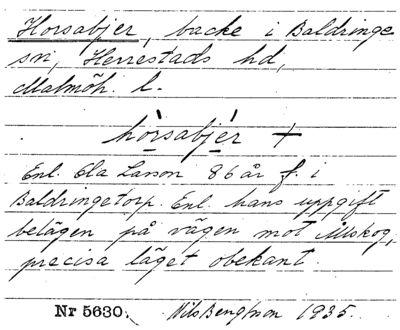 Horsabjer, backe i Baldringe
sn, Herrestads hd,
Malmöh. l.
hòrsabjér +
Enl. Ola Larson 86 år f. i
Baldringetorp. Enl. hans uppgift
belägen på vägen mot Illskog,
precisa läget obekant.
Nr 5630. Nils Bengtson 1935.